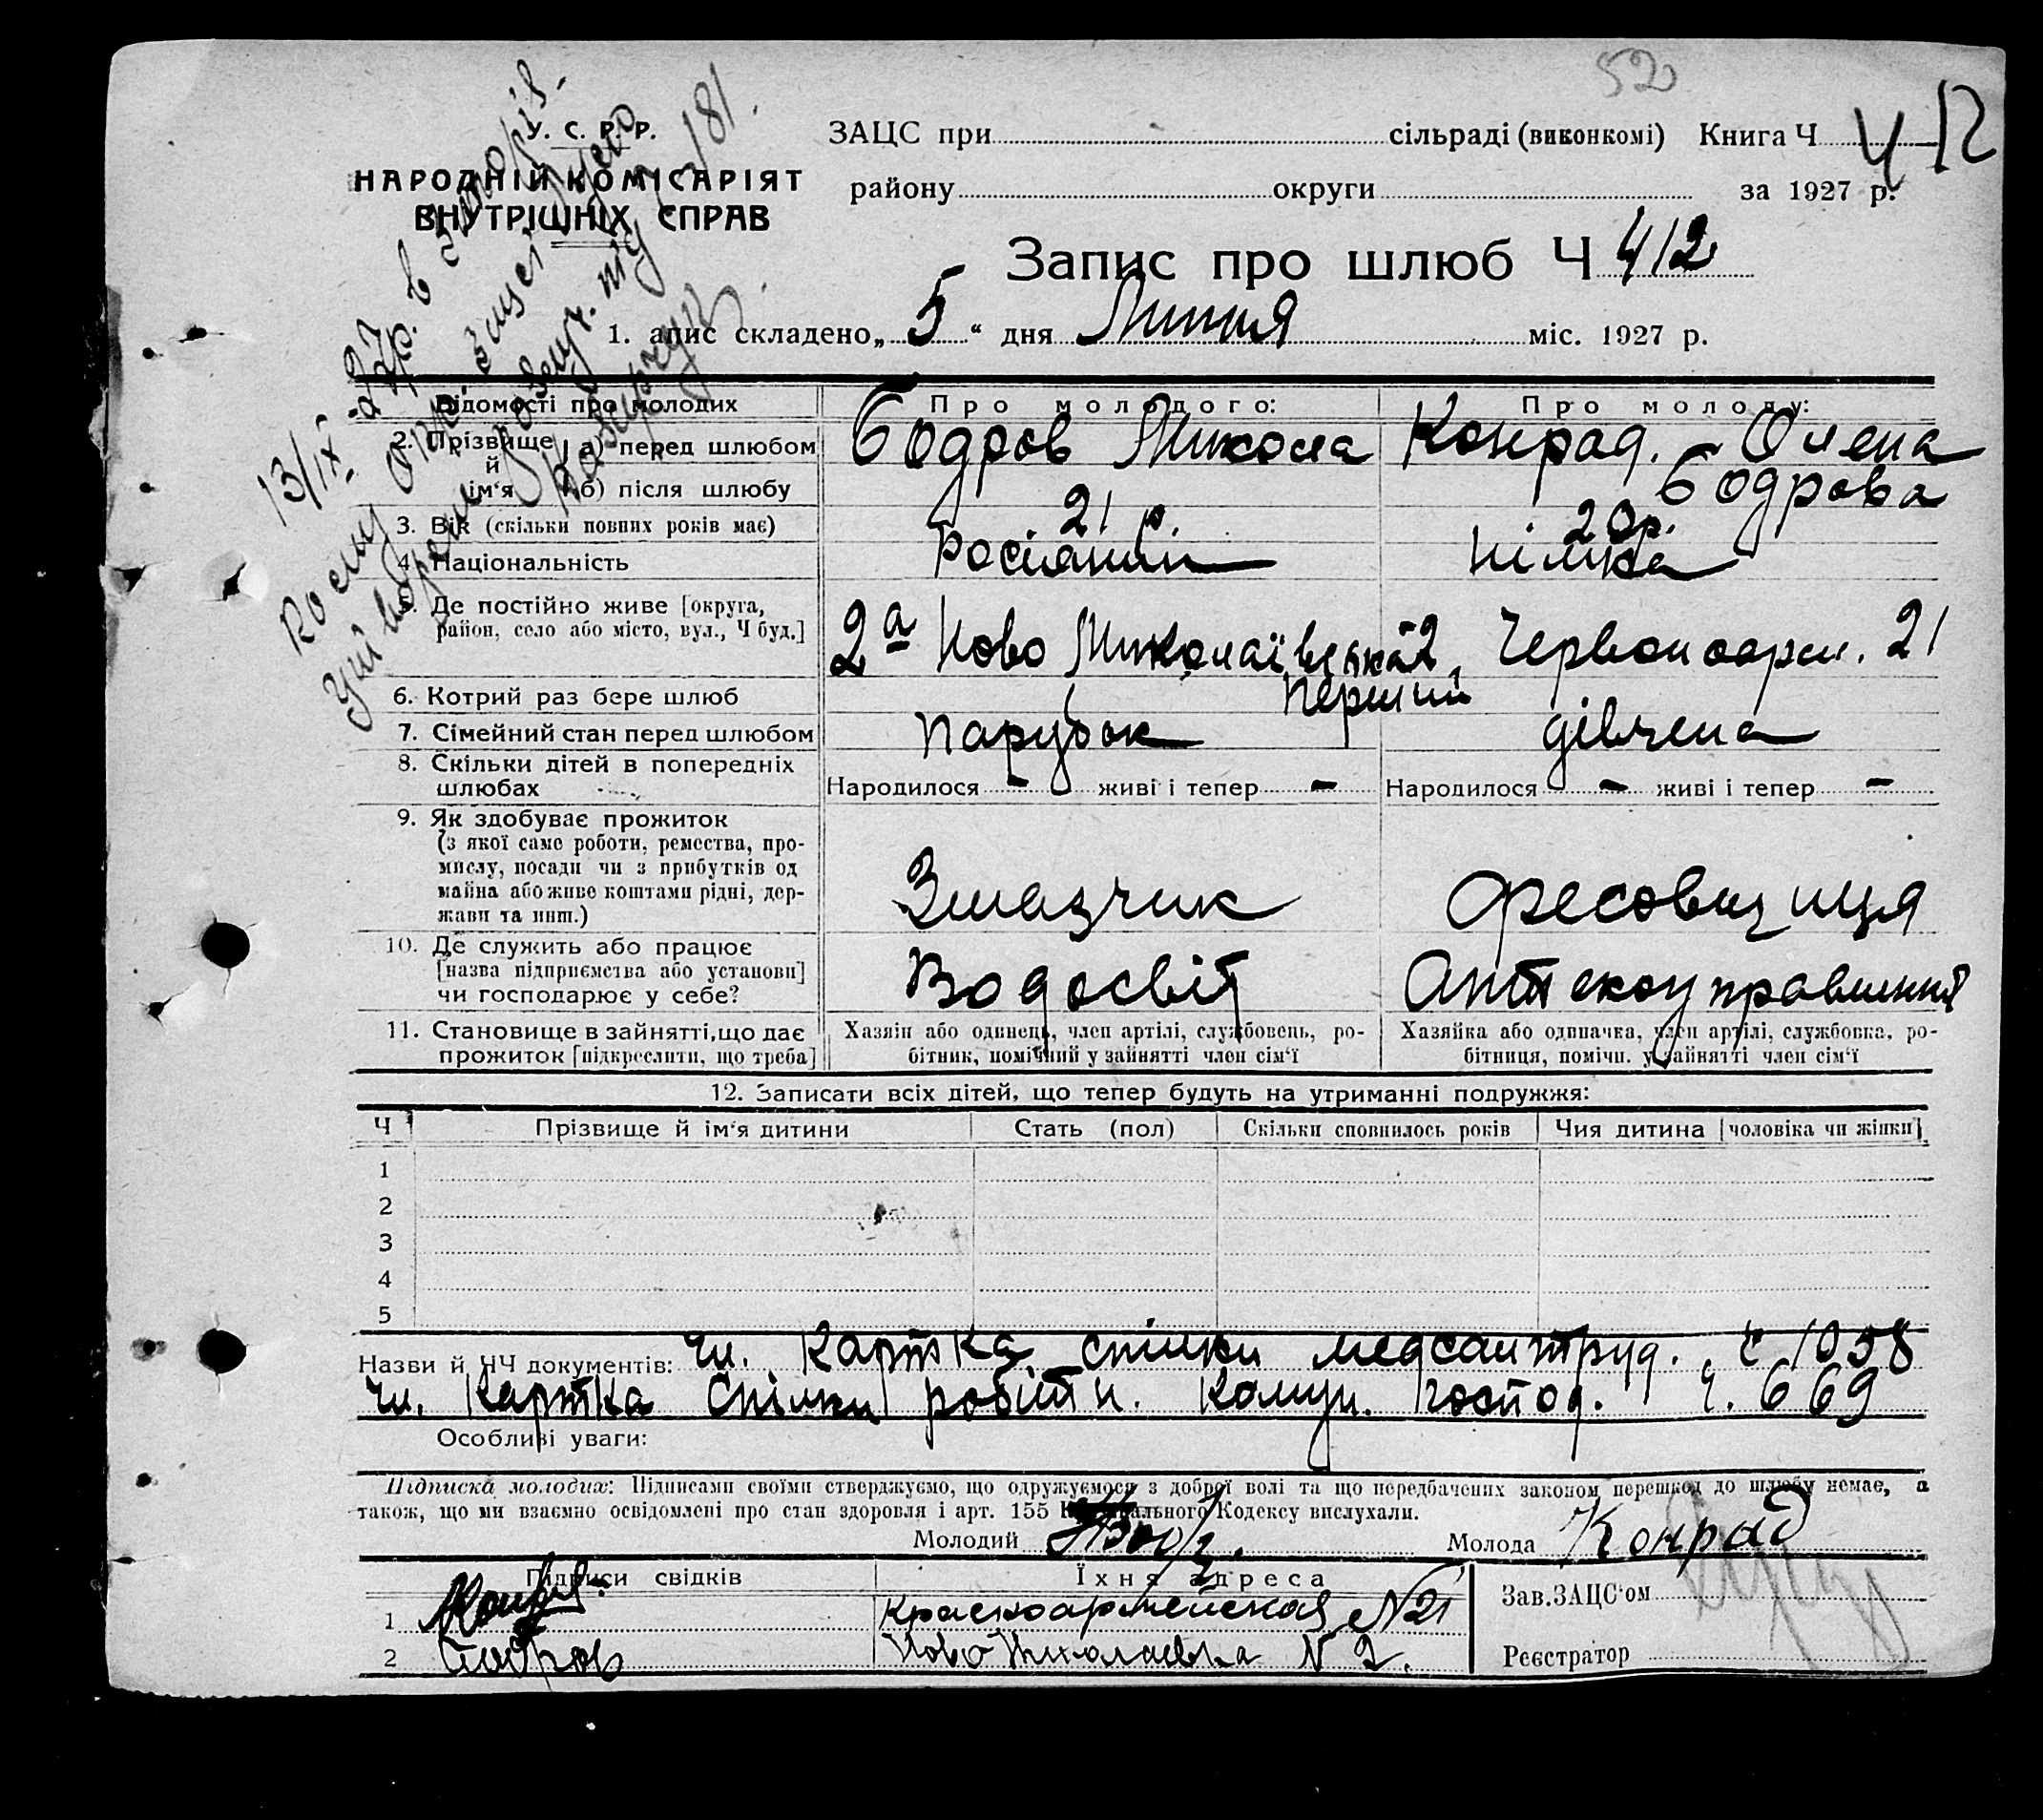 52
У. С. Р. Р.
НАРОДНІЙ КОМІСАРІЯТ
ВНУТРІШНІХ СПРАВ
ЗАЦС при сільраді (виконкомі) Книга Ч 412
району округи за 1927 р.
Запис про шлюб Ч 412
1. апис складено „5“ дня Липня міс. 1927 р.
13/IX
181.
Відомості про молодих Про молодого: Про молоду:
2. Прізвище й ім‘я а) перед шлюбом Бодров Микола Конрад. - Олена
б) після шлюбу Бодрова
3. Вік (скільки повних років має) 21 р. 20 р.
4. Національність Росіянин Німка
5. Де постійно живе [округа,
район, село або місто, вул., Ч буд.] 2а Ново Миколаївська 2, Червоноарм. 21
6. Котрий раз бере шлюб Перший
7. Сімейний стан перед шлюбом Парубок дівчена
8. Скільки дітей в попередніх
шлюбах Народилося - живі і тепер - Народилося - живі і тепер -
9. Як здобуває прожиток
(з якої саме роботи, ремества, про-
мислу, посади чи з прибутків од
майна або живе коштами рідні, дер-
жави та инш.) Змазчик Фесовщиця
10. Де служить або працює
[назва підприємства або установи]
чи господарює у себе? Водосвіт Аптекоуправління
11. Становище в зайнятті, що дає
прожиток [підкреслити, що треба]
Хазяїн або одинець, член артілі, службовець, ро-
бітник, помічний у зайнятті член сім‘ї
Хазяйка або одиначка, член артілі, службовка, ро-
бітниця, помічн. у зайнятті член сім‘ї
12. Записати всіх дітей, що тепер будуть на утриманні подружжя:
Ч Прізвище й ім‘я дитини Стать (пол) Скільки сповнилось років Чия дитина [чоловіка чи жінки]
1
2
3
4
5
Назви й ЧЧ документів: Чл. Картка спілки медсантруд. ч 1058
Чл. Картка Спілки робітн. Комун. Господ. ч. 669
Особливі уваги:
Підписка молодих: Підписами своїми стверджуємо, що одружуємося з доброї волі та що передбачених законом перешкод до шлюбу немає, а
також, що ми взаємно освідомлені про стан здоровля і арт. 155 Кримінального Кодексу вислухали.
Молодий Молода Конрад
Підписи свідків Їхня адреса
1 Красноармейская N21
2 Бодров Ново Николаевка N 2.
Зав. ЗАЦС‘ом
Реєстратор